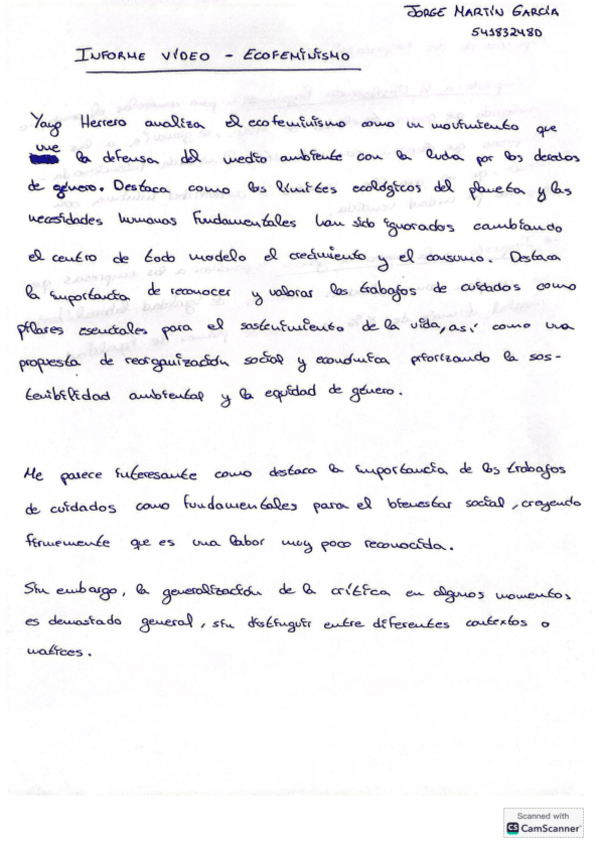 JORGE MARTÍN GARCÍA
541832480
INFORME VÍDEO - ECOFEMINISMO
Yayo Herrero analiza el ecofeminismo como un movimiento que
une la defensa del medio ambiente con la lucha por los derechos
de género. Destaca como los límites ecológicos del planeta y las
necesidades humanas fundamentales han sido ignorados cambiando
el centro de todo modelo el crecimiento y el consumo. Destaca
la importancia de reconocer y valorar los trabajos de cuidados como
pilares esenciales para el sostenimiento de la vida, así como una
propuesta de reorganización social y económica priorizando la sos-
tenibilidad ambiental y la equidad de género.
Me parece interesante como destaca la importancia de los trabajos
de cuidados como fundamentales para el bienestar social, creyendo
firmemente que es una labor muy poco reconocida.
Sin embargo, la generalización de la crítica en algunos momentos
es demasiado general, sin distinguir entre diferentes contextos o
matices.
Scanned with
CS CamScanner